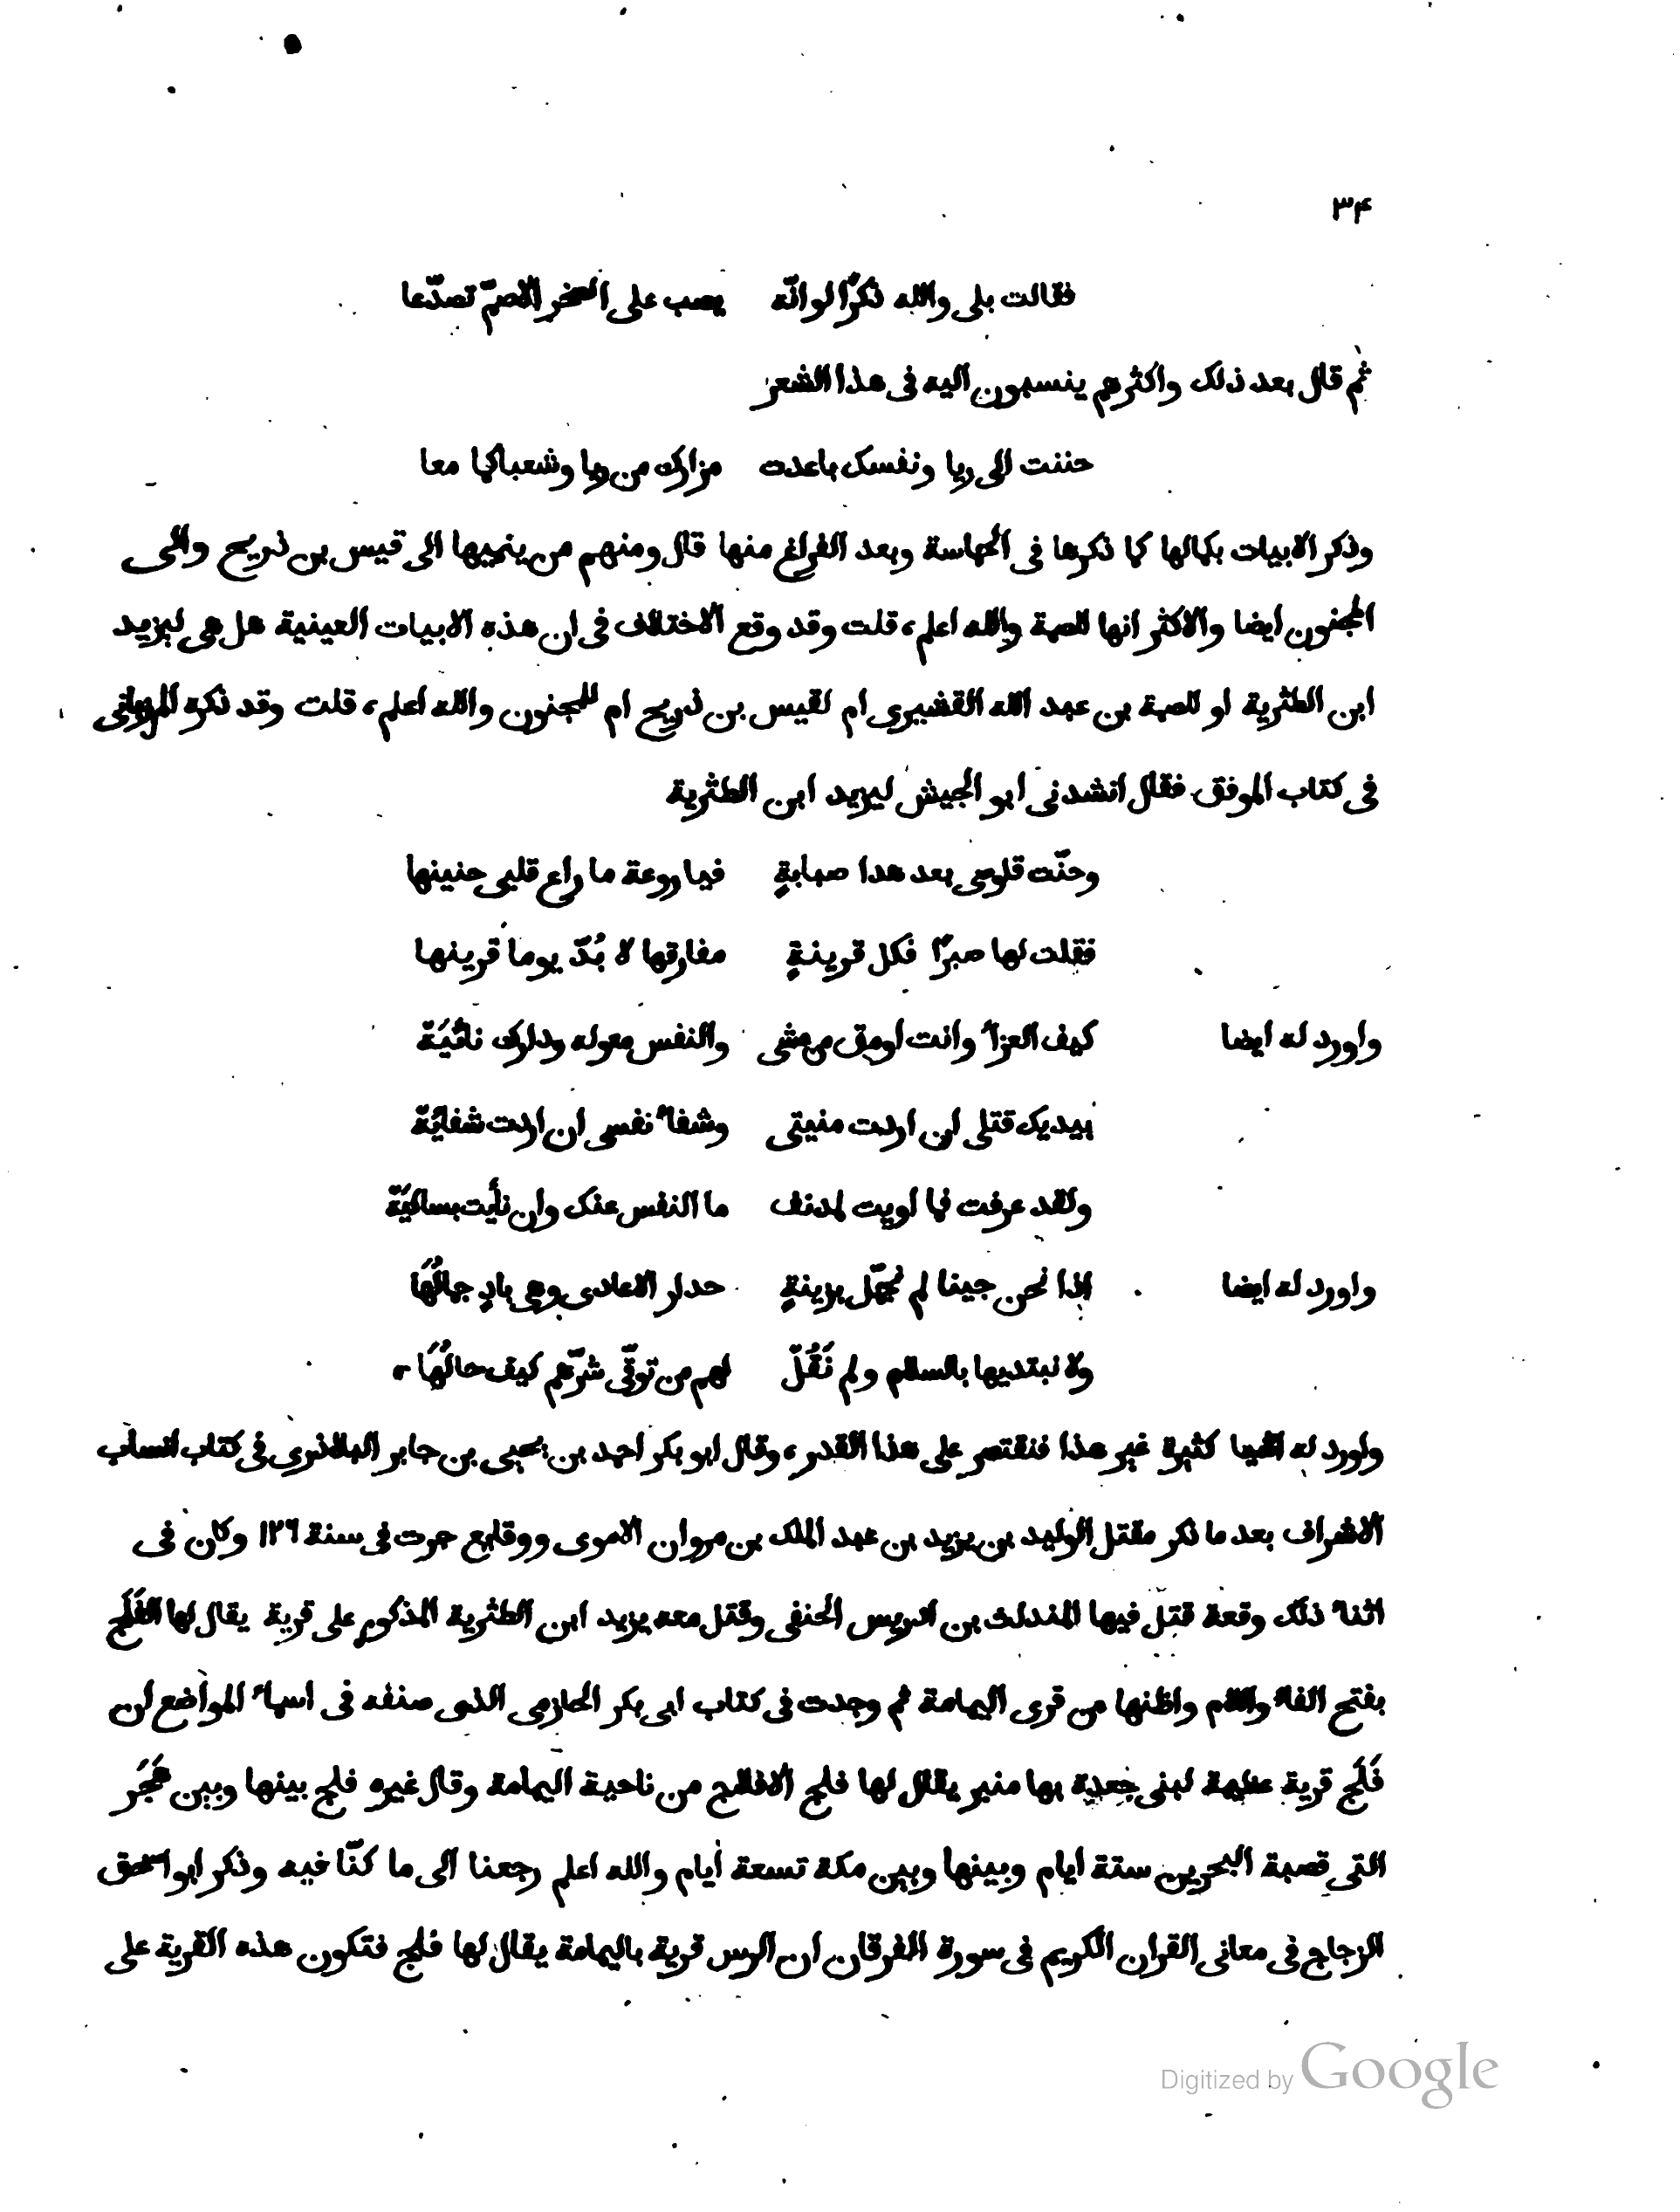 ٣٤
فقالت بلى والله ذكرًا لو انّه يصب على الصخر الاصمّ تصدّعا
ثم قال بعد ذلك واكثرهم ينسبون اليه فى هذا الشعر
حننت الى ريا ونفسك باعدت مزارك من ريا وشعباكما معا
وذكر الابيات بكمالها كما ذكرها فى الحماسة وبعد الفراغ منها قال ومنهم من ينميها الى قيس بن ذريح والى
المجنون ايضا والاكثر انها للصمة والله اعلم، قلت وقد وقع الاختلاف فى ان هذه الابيات العينية هل هى ليزيد
ابن الطثرية او للصمة بن عبد الله القشيرى ام لقيس بن ذريح ام للمجنون والله اعلم، قلت وقد ذكره المرزبانى
فى كتاب الموفق فقال انشدنى ابو الجيش ليزيد ابن الطثرية
وحنّت قلوصى بعد هدا صبابةٍ فيا روعة ما راع قلبى حنينها
فقلت لها صبرًا فكل قرينةٍ مفارقها لا بُدّ يوما قرينها
واورد له ايضا كيف العزاﺀ وانت اومق من مشى والنفس معوله ودارك نائيَةْ
بيديك قتلى ان اردت منيتى وشفاﺀ نفسى ان اردت شفائيَةْ
ولقد عرفت فما اويت لمدنف ما النفس عنك وان نأيت بساليَةْ
واورد له ايضا اذا نحن جينا لم نجمّل بزينةٍ حدار الاعادى وهى بادٍ جمالُهَا
ولا نبتديها بالسلام ولم نَقُلْ لهم من توقّى شرّهم كيف حالُهَا،
واورد له اشيا كثيرة غير هذا فنقتصر على هذا القدر، وقال ابو بكر احمد بن يحيى بن جابر البلاذرى فى كتاب انساب
الاشراف بعد ما ذكر مقتل الوليد بن يزيد بن عبد الملك بن مروان الاموى ووقايع جرت فى سنة ١٢٦ وكان فى
اثناﺀ ذلك وقعة قتل فيها المندلث بن ادريس الحنفى وقتل معه يزيد ابن الطثرية المذكور على قرية يقال لها الفَلَج
بفتح الفاﺀ واللام واظنها من قرى اليمامة ثم وجدت فى كتاب ابى بكر الحازمى الذى صنفه فى اسماﺀ المواضع ان
فَلَج قرية عظيمة لبنى جعدة بها منبر يقال لها فلج الافلاج من ناحية اليمامة وقال غيره فلج بينها وبين هَجَر
التى قصبة البحرين ستة ايام وبينها وبين مكة تسعة ايام والله اعلم رجعنا الى ما كنّا فيه وذكر ابو اسحق
الزجاج فى معانى القران الكريم فى سورة الفرقان ان الرس قرية باليمامة يقال لها فلج فتكون هذه القرية على
Digitized by Google